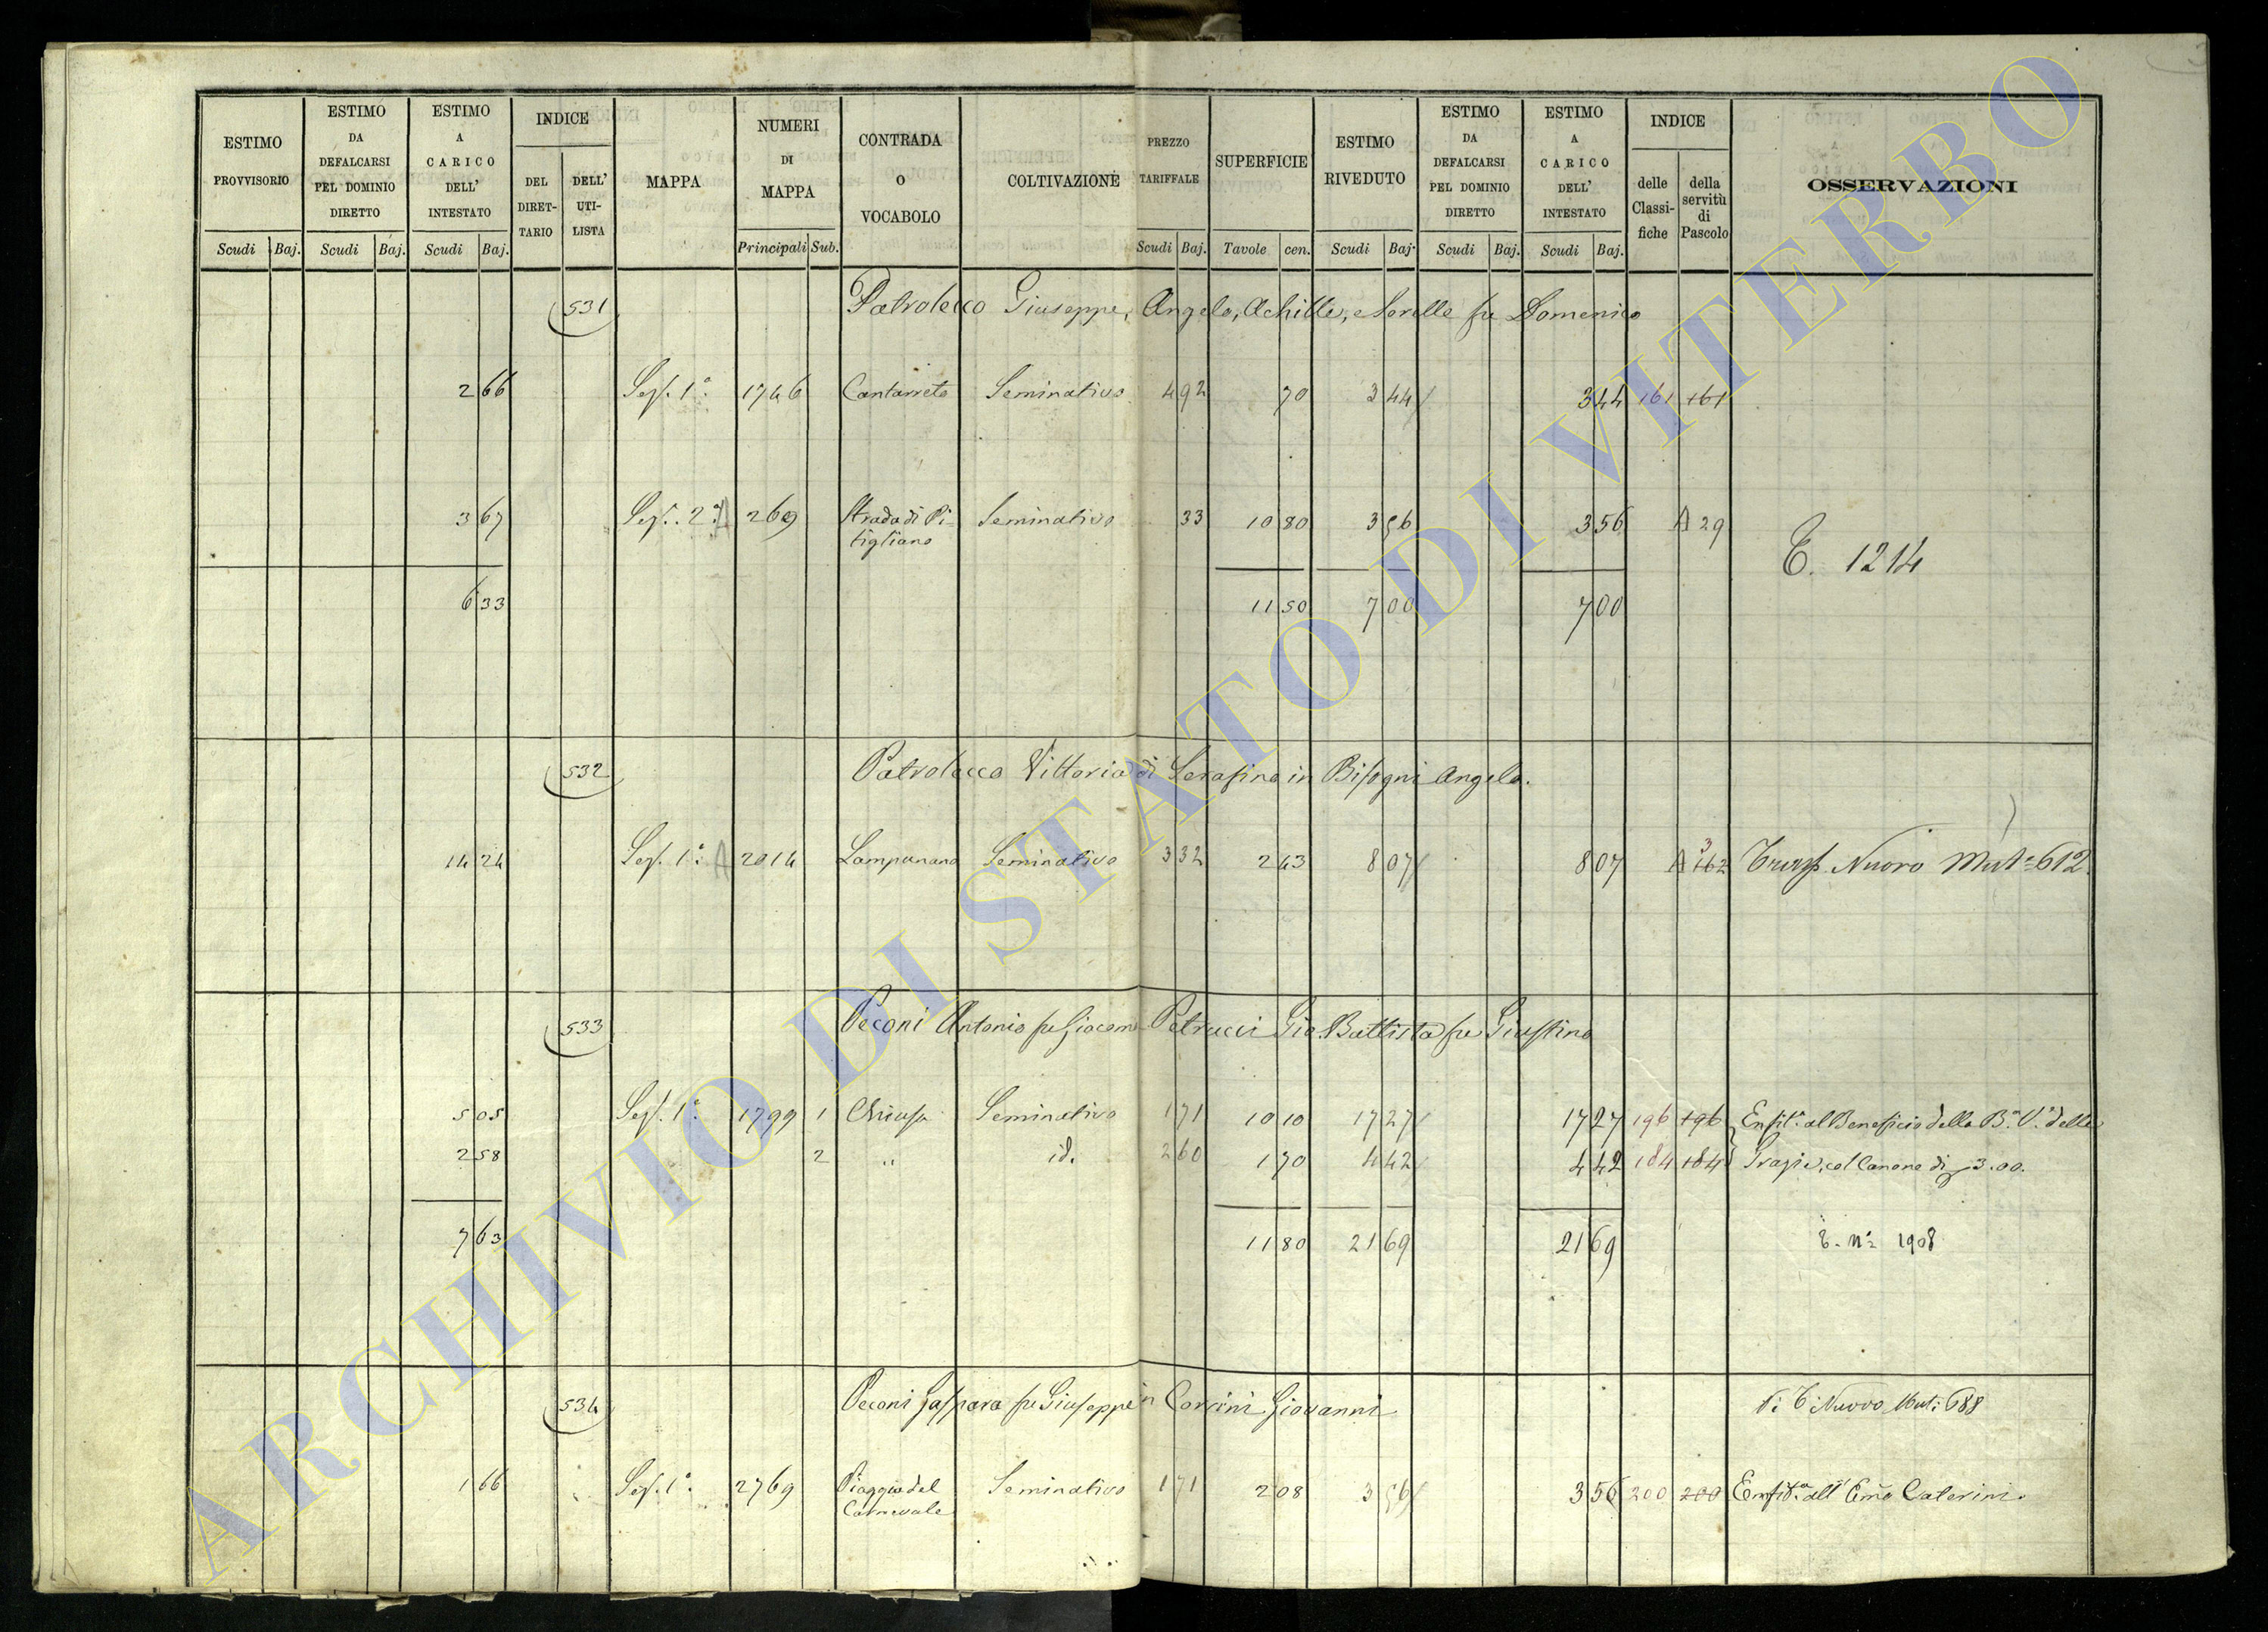 ESTIMO PROVVISORIO Scudi Baj.
ESTIMO DA DEFALCARSI PEL DOMINIO DIRETTO Scudi Baj.
ESTIMO A CARICO DELL' INTESTATO Scudi Baj.
INDICE DEL DIRET- TARIO DELL' UTI- LISTA
MAPPA
NUMERI DI MAPPA Principali Sub.
CONTRADA O VOCABOLO
COLTIVAZIONE
PREZZO TARIFFALE Scudi Baj.
SUPERFICIE Tavole cen.
ESTIMO RIVEDUTO Scudi Baj.
ESTIMO DA DEFALCARSI PEL DOMINIO DIRETTO Scudi Baj.
ESTIMO A CARICO DELL' INTESTATO Scudi Baj.
INDICE delle Classi- fiche della servitù di Pascolo
OSSERVAZIONI
531 Patrolecco Giuseppe, Angelo, Achille, e Sorelle fu Domenico
2 66 Sez. 1ª 1746 Cantarreto Seminativo 4 92 70 3 44 3 44 161 161
3 67 Sez. 2ª A 269 Strada di Pi- Seminativo 33 10 80 3 56 3 56 A 29
tigliano
T. 1214
6 33 11 50 7 00 7 00
532 Patrolecco Vittoria di Serafino in Bisogni Angelo.
14 24 Sez. 1ª A 2014 Lampunano Seminativo 3 32 2 43 8 07 8 07 A 162 3 Nuovo Mut. 612
533 Peconi Antonio fu Giacomo Petrucci Gio. Battista fu Giustino
5 05 Sez. 1ª 1799 1 Chiusa Seminativo 1 71 10 10 17 27 17 27 196 196 Enfit. al Beneficio della B. V. delle
2 58 2 " id. 2 60 1 70 4 42 4 42 184 184 Grazie, col Canone di 3.00.
7 63 11 80 21 69 21 69 T. Nº 1908
534 Peconi Gaspara fu Giuseppe in Corsini Giovanni Vi T Nuovo Mut: 688
1 66 Sez. 1ª 2769 Piaggia del Seminativo 1 71 2 08 3 56 3 56 200 200 Enfit. all' Emo Caterini.
Carnevale
ARCHIVIO DI STATO DI VITERBO